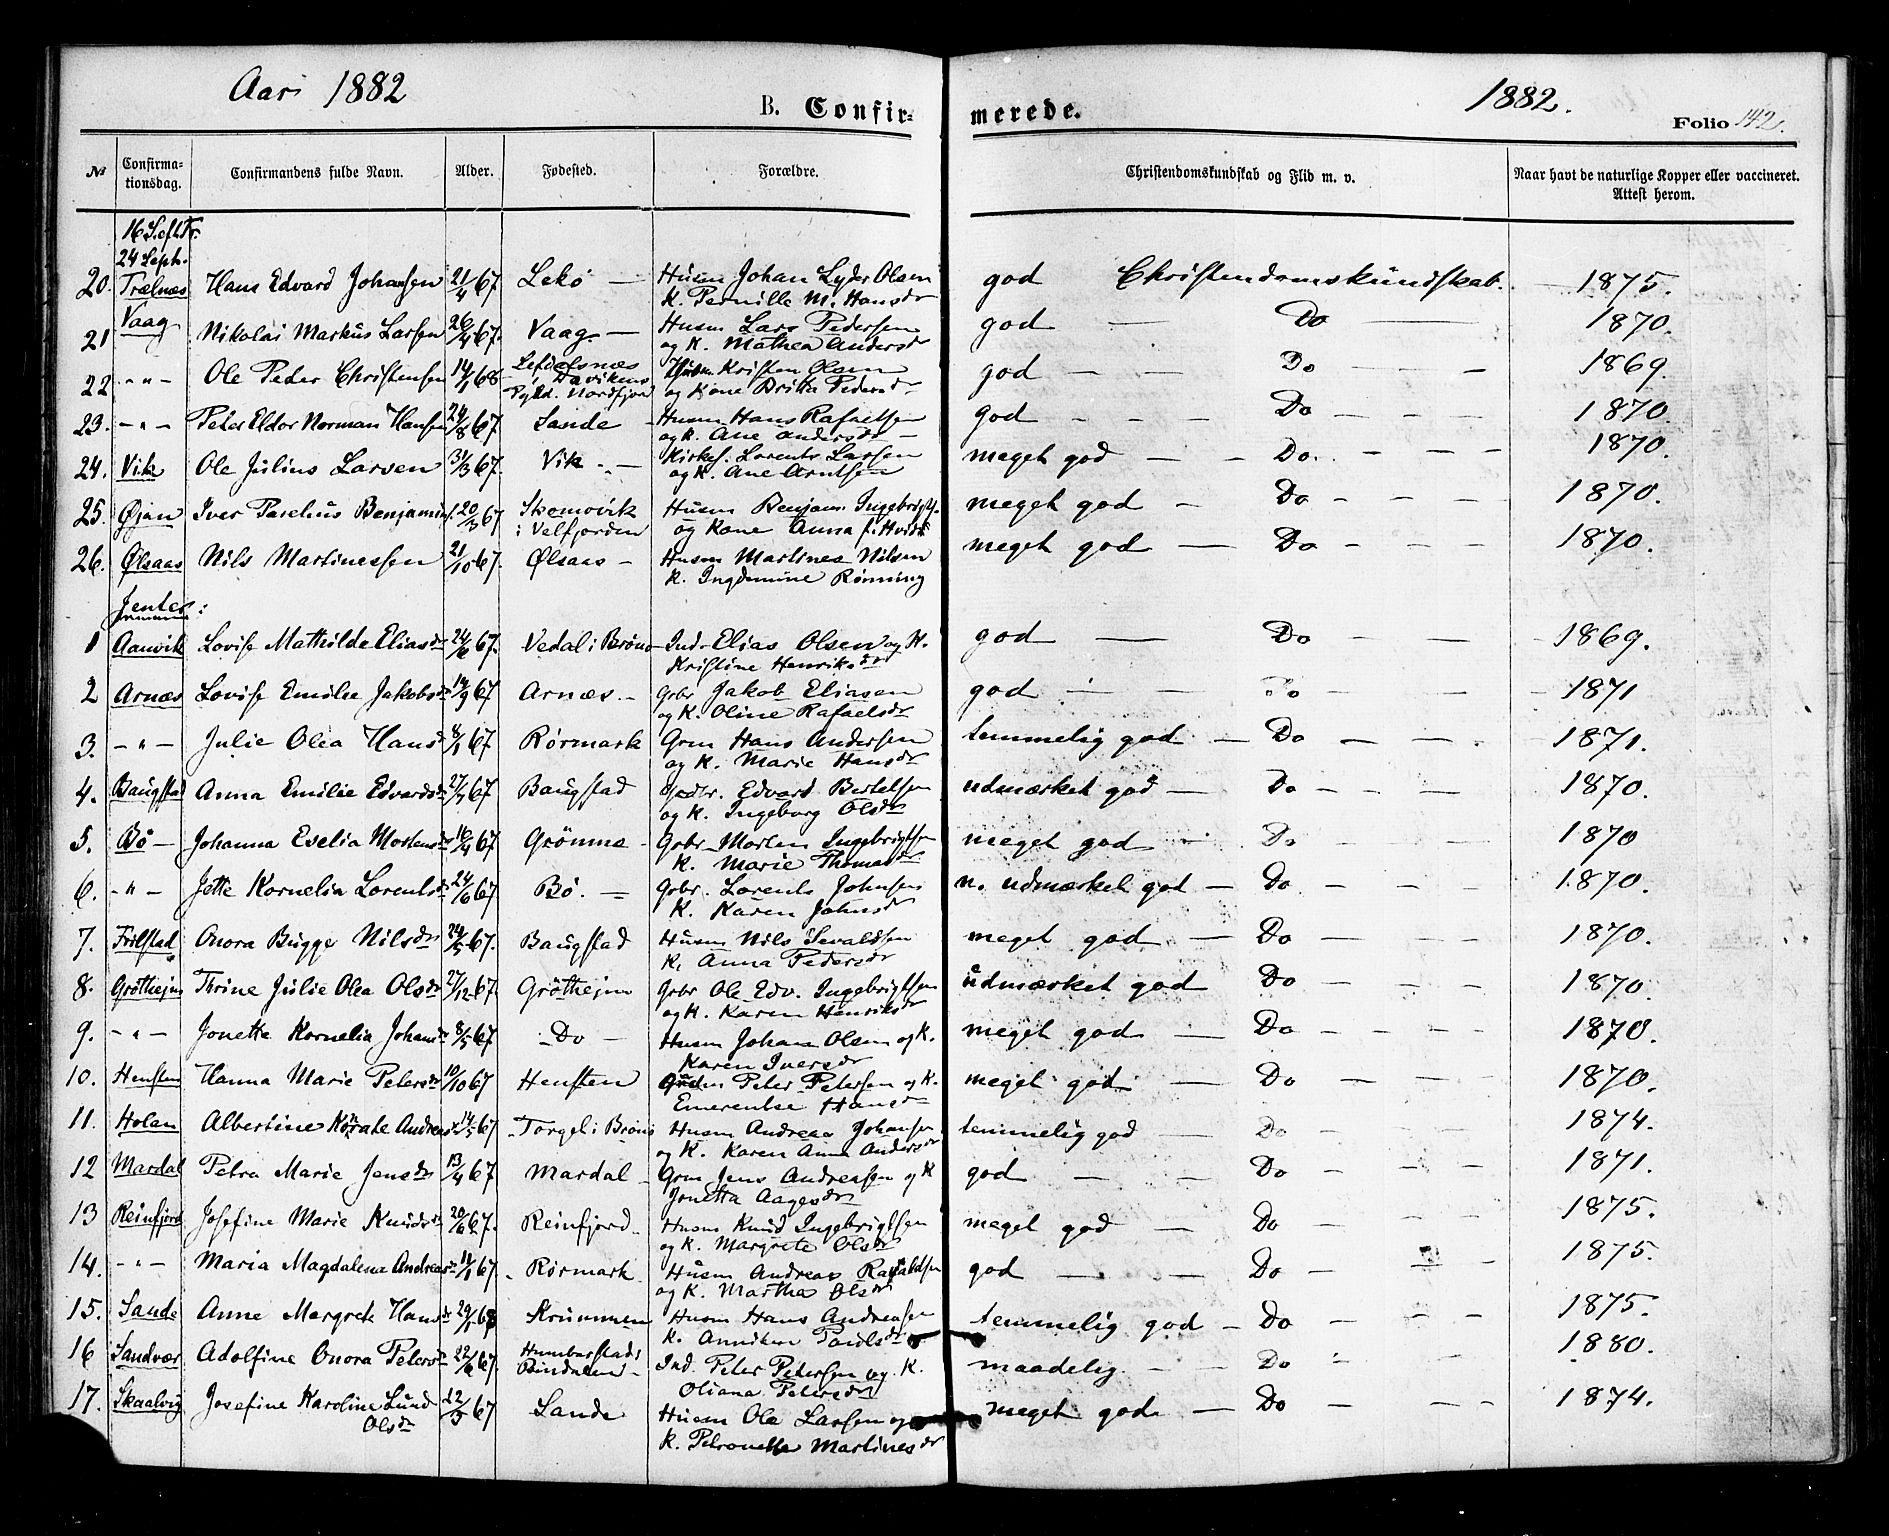 Aar 1882
B. Confir-
merede.
1882.
Folio 142.
№ Confirma-tionsdag. Confirmandens fulde Navn. Alder. Fødested. Forældre. Christendomskundskab og Flid m. v. Naar havt de naturlige Kopper eller vaccineret. Attest herom.
16 S. eft. Tr.
24 Septr.
20. Trælnæs Hans Edvard Johansen 21/4 67 Lekø — Husm Johan Lyder Olsen god Christendomskundskab. 1875.
K. Pernille M. Hansdr
21 Vaag Nikolai Markus Larsen 26/4 67. Vaag — Husm Lars Pedersen god — Do — 1870.
og K. Mathea Andersdr
22 -"- Ole Peder Christensen 14/1 68 Husm Kristen Olsen god — — Do — — 1869.
Davikens
Pgld. Nordfjord og Kone Britta Pedersdr
23. -"- Peter Eldor Norman Hansen 24/8 67 Sande - Husm Hans Rafaelsen god - - - Do - - - 1870.
og K. Ane Andersdr —
24. Vik Ole Julius Larsen 31/3 67. Vik - Kirkes. Lorents Larsen meget god — - Do. - - - - 1870.
og K. Ane Arntsen
25. Øjan Iver Paselius Benjamins. 20/3 67 Skomovik Husm Benjam. Ingebrigts. meget god - Do - - - 1870.
i Velfjorden og Kone Anna f. Hvidt
26. Ølsaas Nils Martinessen 21/10 67. Ølsaas - Husm Martines Nilsen meget god — Do - - - 1870.
K. Ingeminne Rønning
Jenter:
1 Aanvik Lovise Mathilde Eliasdr 24/6 67. Vedal i Brønø Ind. Elias Olsen og K. god — Do - - - 1869.
Kristine Henriksdr
2 Arnæs Lovise Emilie Jakobsdr 14/9 67 Arnæs. - Grbr Jakob Eliasen god - - Do - - - 1871
og K. Oline Rafaelsdr
3. -"- Julie Olea Hansdr 8/1 67 Rørmark Grm Hans Andersen temmelig god — Do — — - 1871.
og K. Marie Hansdr
4. Baugstad Anna Emilie Edvardsdr 27/7 67 Baugstad Gdbr. Edvard Bertelsen udmærket god — Do - - - 1870.
og K. Ingeborg Olsdr
5. Bø — Johanna Evelia Mortensdr 16/4 67 Grømme - Grbr Morten Ingebrigtsen meget god - Do - - - 1870
K. Marie Thomasdr
6. -"- Jette Kornelia Lorentsdr 24/6 67 Bø. — Grbr. Lorents Johnsen n. udmærket god — Do - - - 1870.
K. Karen Johnsdr
7. Fuilstad Onora Bugge Nilsdr 24/5 67. Baugstad Husm Nils Sevaldsen meget god — Do — - - 1870.
K. Anna Pedersdr
8. Grøthejm Thrine Julie Olea Olsdr 27/12 67. Grøthejm Grbr Ole Edv. Ingebrigtsen udmærket god Do - - - 1870.
og K. Karen Henriksdr
9. -"- Jonette Kornelia Johansdr 8/5 67 -Do — Husm Johan Olsen og K. meget god — Do - - - 1870.
Karen Iversdr
10. Hensten Hanna Marie Petersdr 10/10 67 Hensten Peter Petersen og K. meget god — Do - - - 1870.
Emerentse Hansdr
11. Holan Albertine Andreasdr 14/5 67 - Torgel i Brønø Husm Andreas Johansen temmelig god — Do - - - 1874.
og K. Karen Anna Andersdr
12 Mardal Petra Marie Jensdr 13/4 67 Mardal - Grm Jens Andreassen og K god — — Do - - - 1871.
Jonetta Aagesdr
13 Reinfjord Josefine Marie Knudsdr 20/6 67. Reinfjord Husm Knud Ingebrigtsen meget god — Do - - - 1875.
og K. Margrete Olsdr
14. -"- Maria Magdalena Andreasdr 11/1 67. - Rørmark. Husm Andreas god — — Do - — - 1875.
og K. Martha Olsdr
15. Sande Anne Margrete Hansdr 29/1 68 Krummen Husm Hans Andreasen temmelig god — Do - - - 1875.
K. Anniken Paulsdr
16 Sandvær Adolfine Onora Petersdr 22/6 67. Ind. Peter Petersen og K. maadelig. — - Do - - - 1880.
Bindalen - Oliana Petersdr
17. Skaalvig Josefine Karoline Lund 22/3 67 Sande Husm Ole Larsen og meget god — Do - - - 1874.
Olsdr K. Petronelle Martinesdr